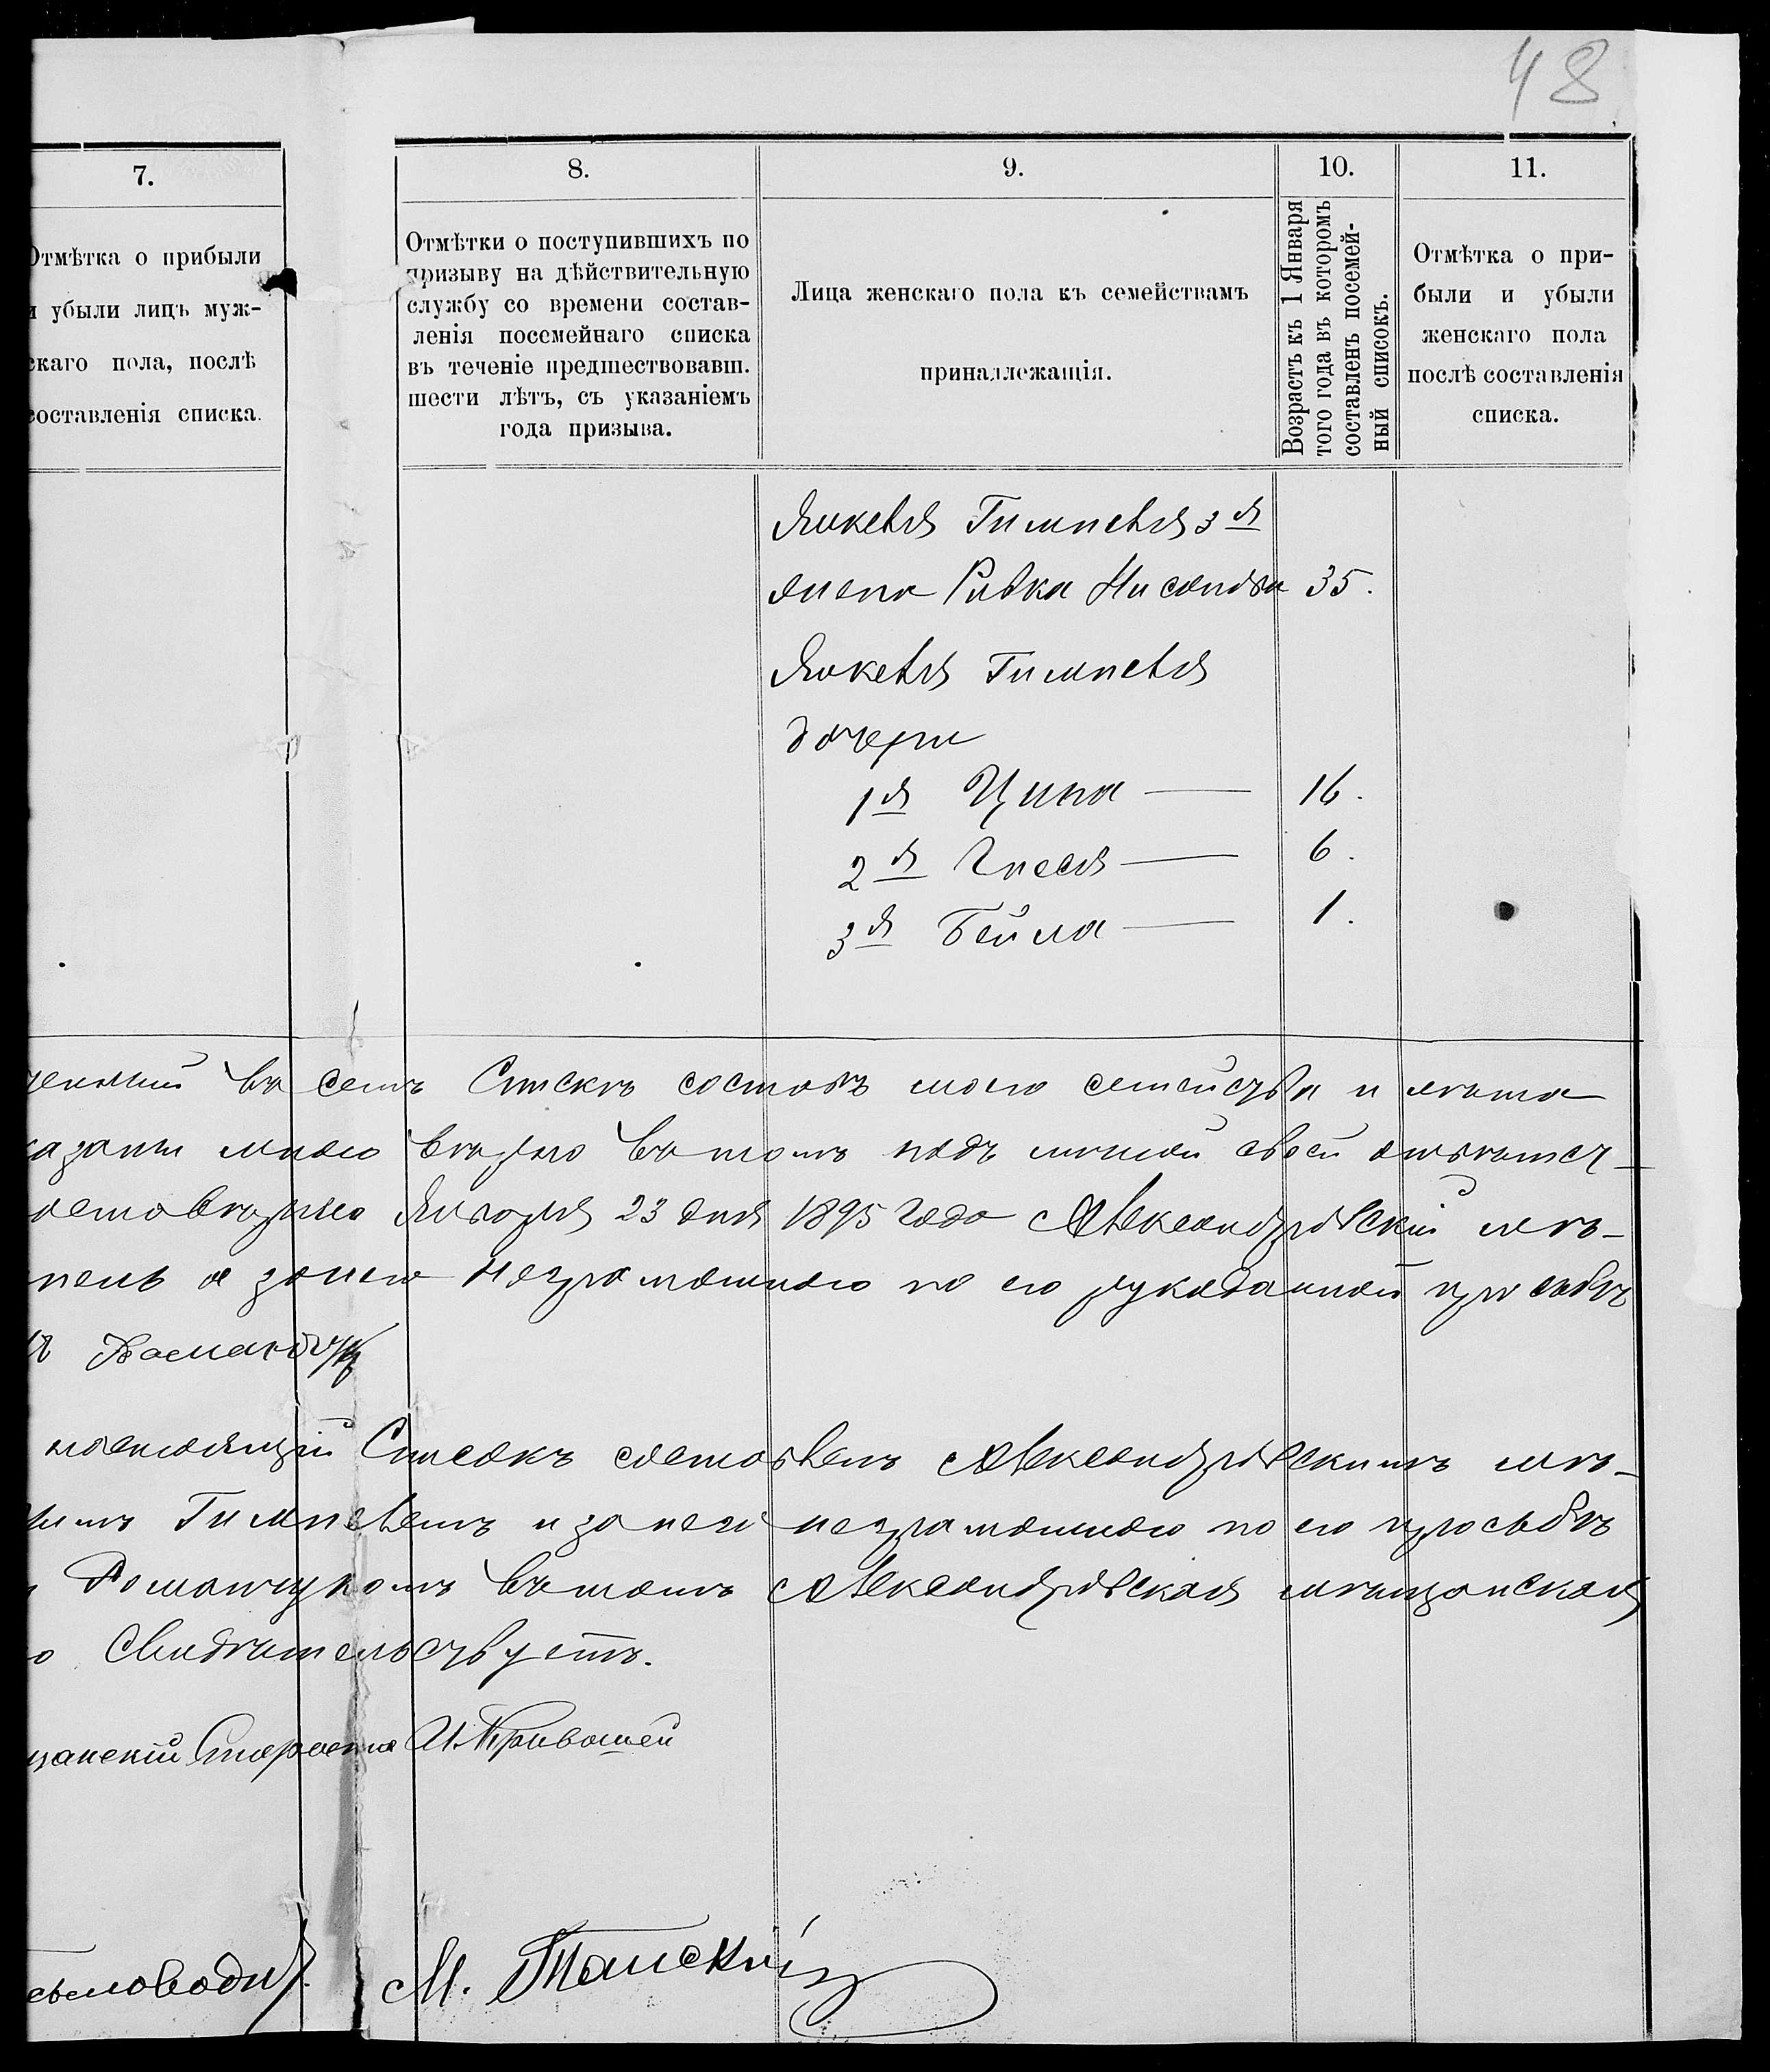 48
7.
8.
9.
10.
11.
Отмѣтка о прибыли
и убыли лицъ муж-
скаго пола, послѣ
составленія списка.
Отмѣтки о поступившихъ по
призыву на дѣйствительную
службу со времени состав-
ленія посемейнаго списка
въ теченіе предшествовавш.
шести лѣтъ, съ указаніемъ
года призыва.
Лица женскаго пола къ семействамъ
принадлежащія.
Возрастъ къ 1 Января
того года въ которомъ
составленъ посемей-
ный списокъ.
Отмѣтка о при-
были и убыли
женскаго пола
послѣ составленія
списка.
Янкеля Гимпеля 3я
жена Ривка 35.
Янкеля Гимпеля
дочери
1я Ципа — 16.
2я Гнеся — 6.
3я Бейла — 1.
въ семъ Спискѣ составъ моего семейства и лѣта
казаны мною вѣрно въ томъ подъ личной своей отвѣтст-
Января 23 дня 1895 года Александровскій мѣ-
а за него неграмотнаго по его рукоданной просьбѣ
Романчукъ
настоящій Списокъ составленъ Александровскимъ мѣ-
Гимпелемъ и за него неграмотнаго по его просьбѣ
Романчукомъ въ томъ Александровская мѣщанская
свидѣтельствуетъ.
щанскій Староста И. Кривошей
сьмоводи
М. Танскій